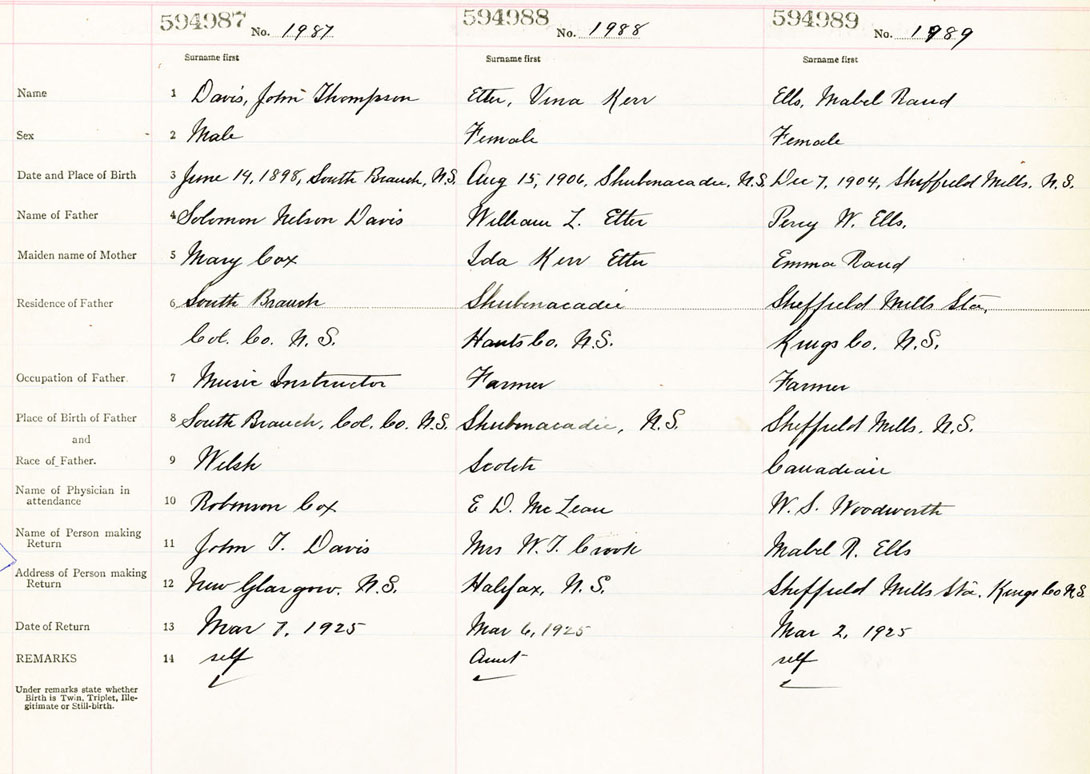 594987 No. 1987 594988 No. 1988 594989 No. 1989
Surname first Surname first Surname first
Name 1 Davis, John Thompson Etter, Vina Kerr Ells, Mabel Rand
Sex 2 Male Female Female
Date and Place of Birth 3 June 14, 1898, South Branch, N.S. Aug 15, 1906, Shubenacadie, N.S. Dec 7, 1904, Sheffield Mills, N.S.
Name of Father 4 Solomon Nelson Davis William L. Etter Percy W. Ells,
Maiden name of Mother 5 Mary Cox Ida Kerr Etter Emma Rand
Residence of Father 6 South Branch Shubenacadie Sheffield Mills Sta,
Col. Co. N.S. Hants Co. N.S. Kings Co. N.S.
Occupation of Father 7 Music Instructor Farmer Farmer
Place of Birth of Father 8 South Branch, Col. Co. N.S. Shubenacadie, N.S. Sheffield Mills, N.S.
and
Race of Father. 9 Welsh Scotch Canadian
Name of Physician in
attendance 10 Robinson Cox E D. McLean W. S. Woodworth
Name of Person making
Return 11 John T. Davis Mrs W. T. Crook Mabel R. Ells
Address of Person making
Return 12 New Glasgow, N.S. Halifax, N.S. Sheffield Mills Sta, Kings Co N.S.
Date of Return 13 Mar 7, 1925 Mar 6, 1925 Mar 2, 1925
REMARKS 14 self Aunt self
Under remarks state whether
Birth is Twin, Triplet, Ille-
gitimate or Still-birth.